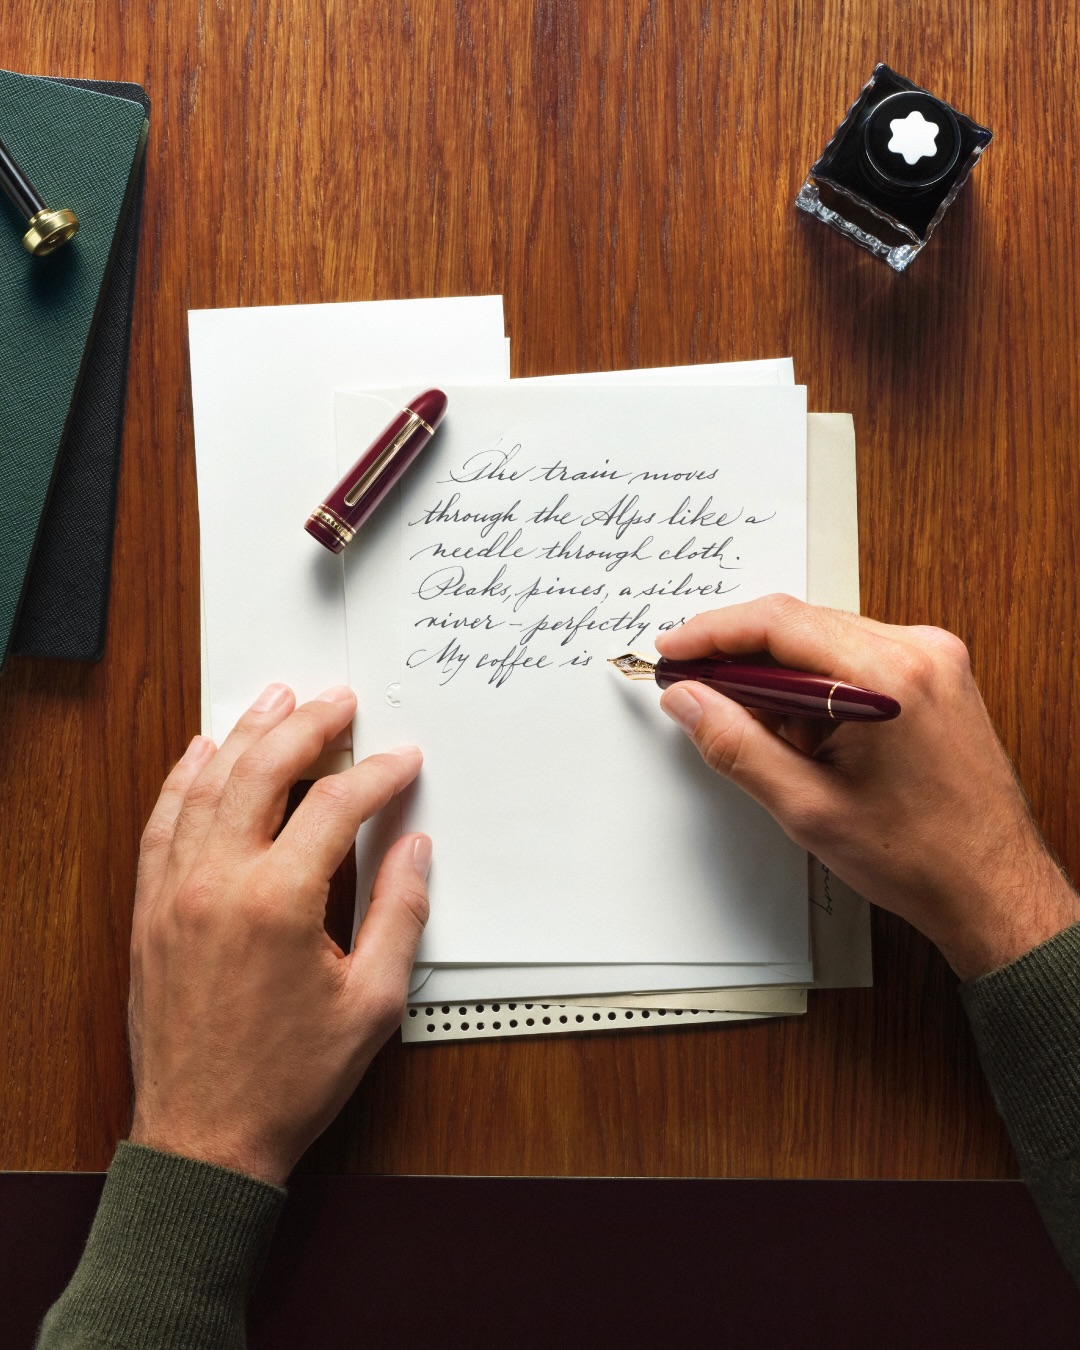 The train moves
through the Alps like a
needle through cloth.
Peaks, pines, a silver
river – perfectly
My coffee is